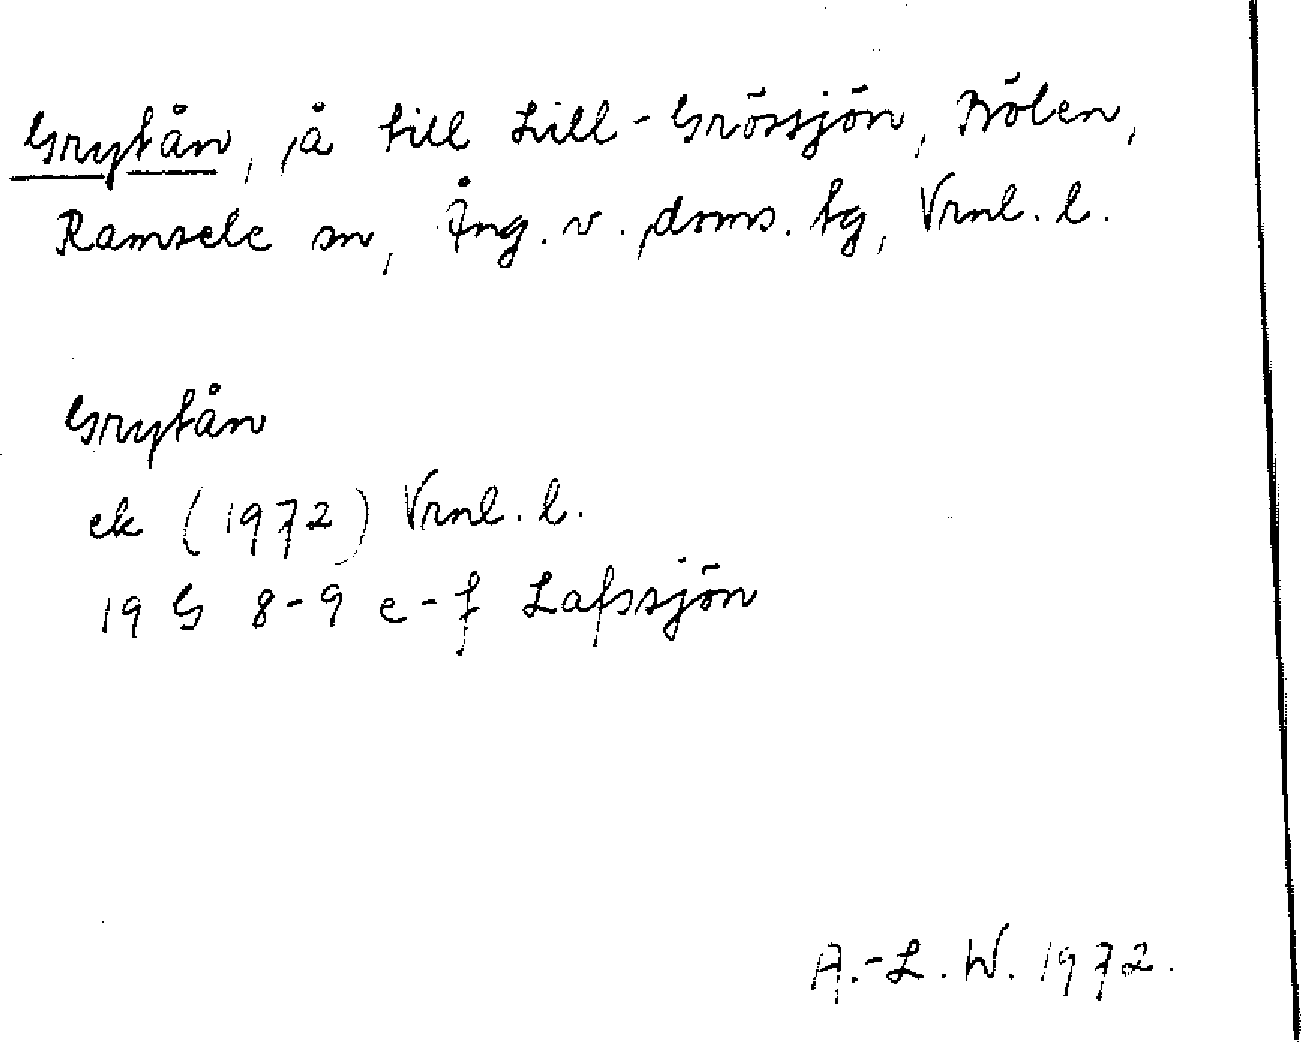 Grytån, å till Lill-Grössjön, Bölen,
Ramsele sn, Ång. v. doms. tg, Vrnl. l.
Grytån
ek (1972) Vrnl. l.
19 G 8-9 e-f Lafssjön
A.-L. W. 1972.